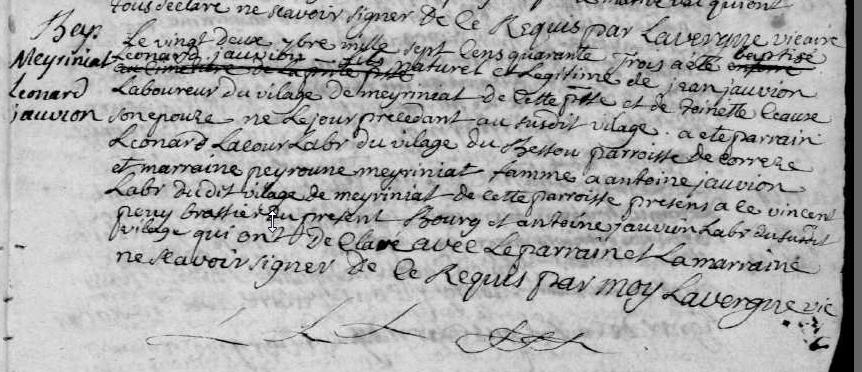 tous declaré ne scavoir signer de ce Requis par Lavergne vicaire
Bep
Meyriniat
Leonard
jauvion
Le vingt deux 7bre mille sept cens quarante Trois a ete baptisé
Leonard jauvion fils naturel et Legitime de jean jauvion
Laboureur du vilage de meyriniat de cette psse et de Toinette
son epouze ne Le jour precedant au susdit vilage. a ete parrain
Leonard Lacour Labr du vilage du Bessou parroisse de correze
et marraine peyroune meyriniat famme a antoine jauvion
Labr du dit vilage de meyriniat de cette parroisse presens a ce vincent
peuy brassier du present Bourg et antoine jauvion Labr du susdit
vilage qui ont declare avec Le parrain et La marraine
ne scavoir signer de ce Requis par moy Lavergne vic